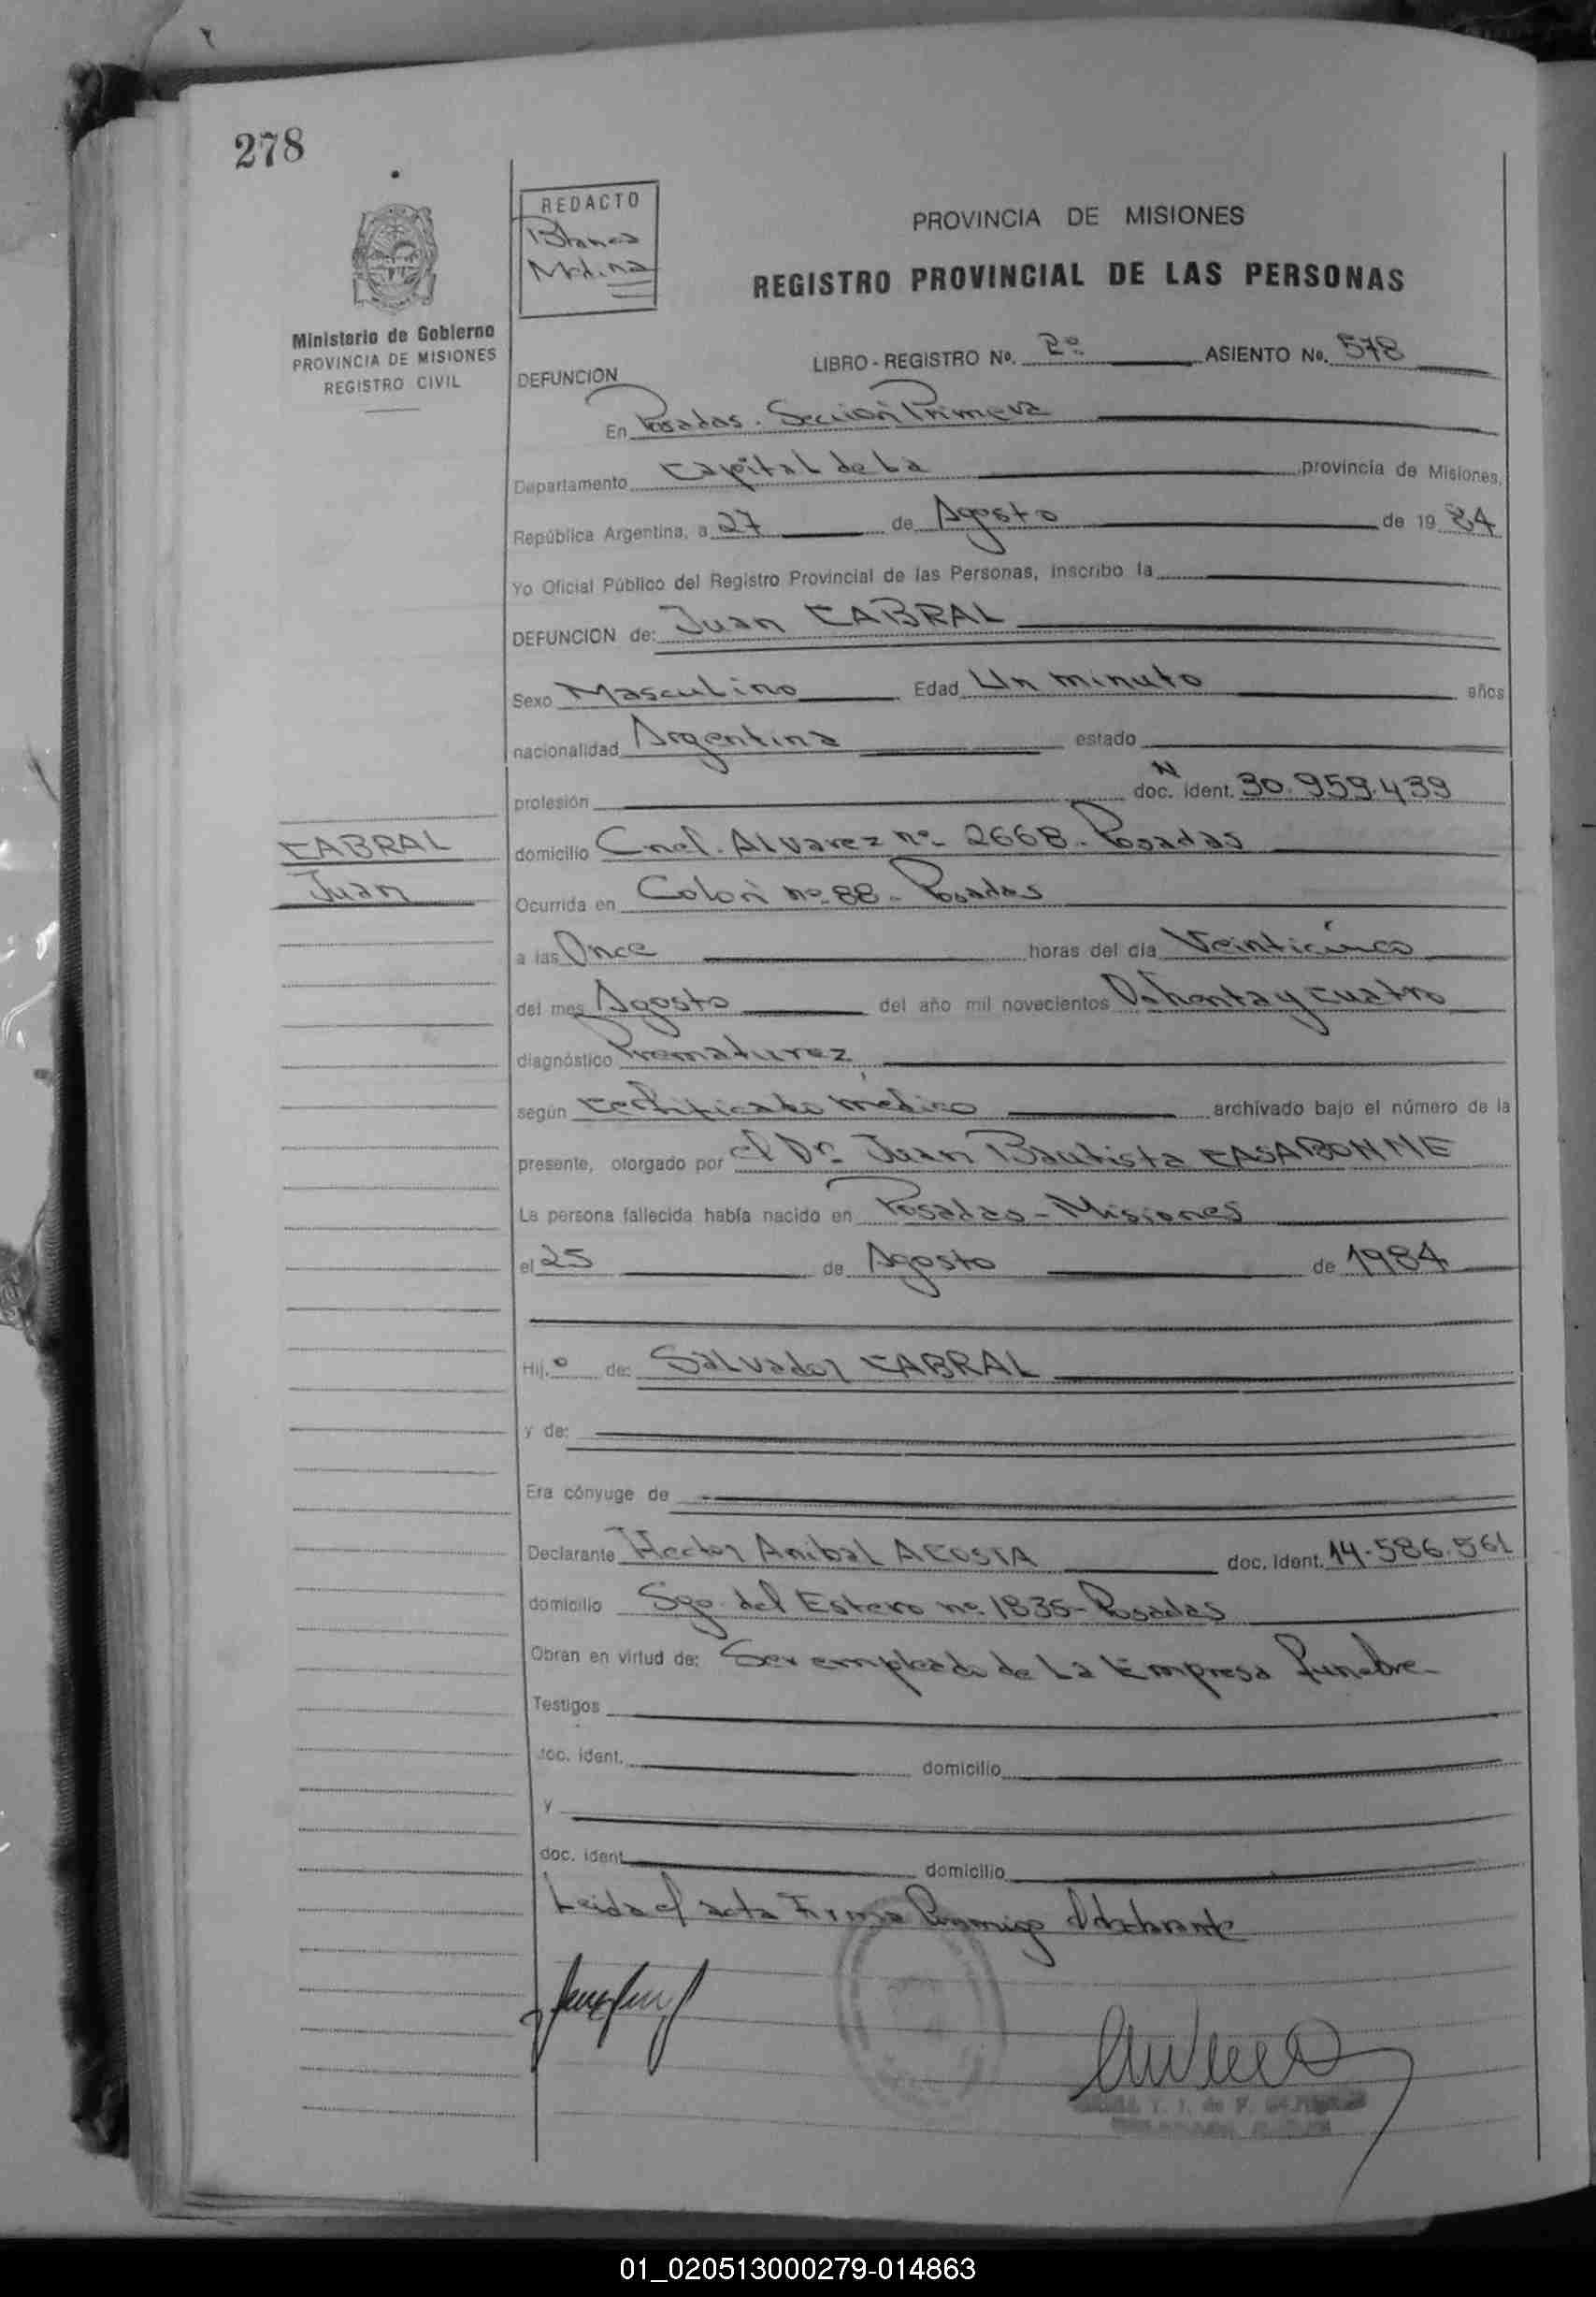 278
REDACTO
Blanca
Medina
PROVINCIA DE MISIONES
REGISTRO PROVINCIAL DE LAS PERSONAS
Ministerio de Gobierno
PROVINCIA DE MISIONES
REGISTRO CIVIL
LIBRO - REGISTRO No. 2º ASIENTO No. 578
DEFUNCION
En Posadas. Sección Primera
Departamento Capital de La provincia de Misiones,
República Argentina, a 27 de Agosto de 1984
Yo Oficial Público del Registro Provincial de las Personas, inscribo la
DEFUNCION de: Juan CABRAL
Sexo Masculino Edad Un minuto años
nacionalidad Argentina estado
profesión doc. N ident. 30.959.439
CABRAL
Juan
domicilio Cnel. Alvarez nº 2668 - Posadas
Ocurrida en Colón nº 88 - Posadas
a las Once horas del día Veinticinco
del mes Agosto del año mil novecientos Ochenta y cuatro
diagnóstico Prematurez
según certificado médico archivado bajo el número de la
presente, otorgado por el Dr. Juan Bautista CASABONNE
La persona fallecida había nacido en Posadas - Misiones
el 25 de Agosto de 1984
Hij o de: Salvador CABRAL
y de:
Era cónyuge de
Declarante Hector Anibal ACOSTA doc. Ident. 14.586.561
domicilio Sgo. del Estero nº 1835 - Posadas
Obran en virtud de: Ser empleado de La Empresa funebre -
Testigos
doc. ident. domicilio
y
doc. ident. domicilio
Leida el acta Firma Conmigo el declarante
01_020513000279-014863